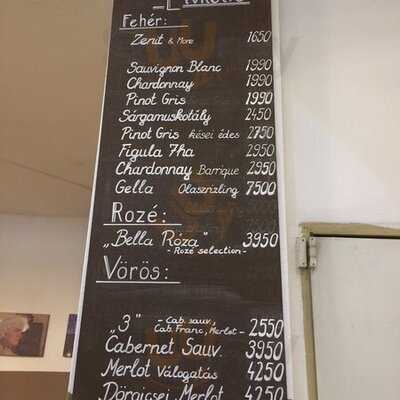 Fehér:
Zenit & More 1650
Sauvignon Blanc 1990
Chardonnay 1990
Pinot Gris 1990
Sárgamuskotály 2450
Pinot Gris kései édes 2750
Figula 7ha 2950
Chardonnay Barrique 2950
Gella Olaszrizling 7500
Rozé:
„Bella Róza” 3950
- Rozé selection -
Vörös:
„3” - Cab. sauv., 2550
Cab. Franc, Merlot -
Cabernet Sauv. 3950
Merlot Válogatás 4250
Dörgicsei Merlot 4250